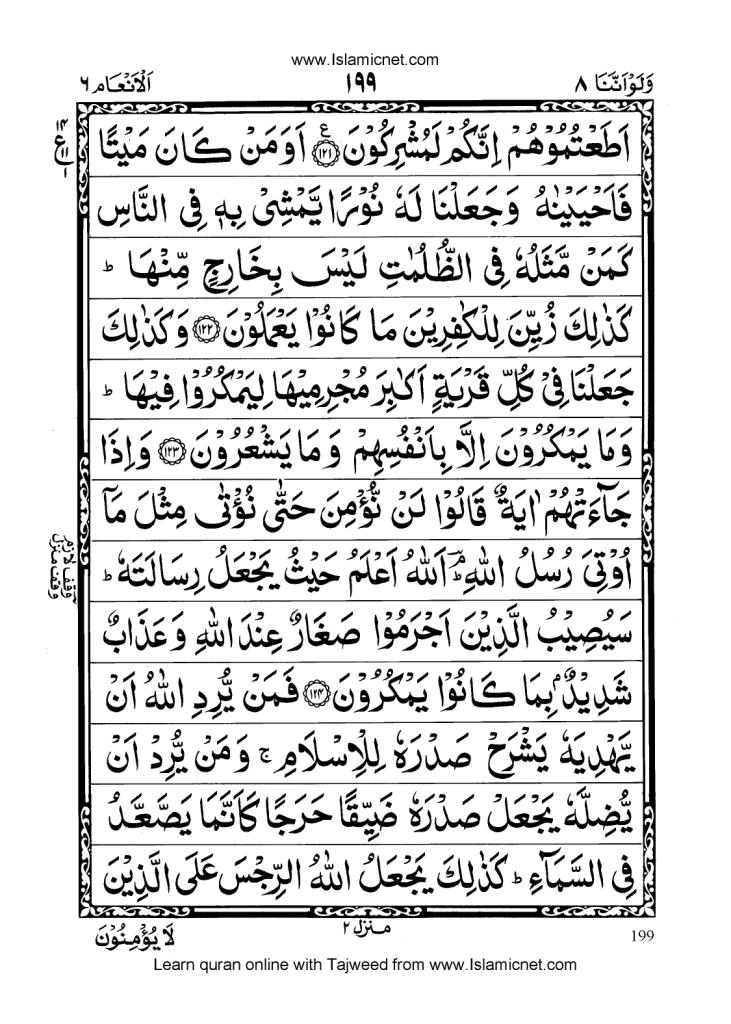 www.Islamicnet.com
وَلَوْاَنَّنَا ٨
١٩٩
اَلْاَنْعَام ٦
اَطَعْتُمُوْهُمْ اِنَّكُمْ لَمُشْرِكُوْنَ ع ١٢١ اَوَمَنْ كَانَ مَيْتًا
١٤ ع ١١ ١
فَاَحْيَيْنٰهُ وَجَعَلْنَا لَهٗ نُوْرًا يَّمْشِىْ بِهٖ فِى النَّاسِ
كَمَنْ مَّثَلُهٗ فِى الظُّلُمٰتِ لَيْسَ بِخَارِجٍ مِّنْهَا ؕ
كَذٰلِكَ زُيِّنَ لِلْكٰفِرِيْنَ مَا كَانُوْا يَعْمَلُوْنَ ١٢٢ وَكَذٰلِكَ
جَعَلْنَا فِىْ كُلِّ قَرْيَةٍ اَكٰبِرَ مُجْرِمِيْهَا لِيَمْكُرُوْا فِيْهَا ؕ
وَمَا يَمْكُرُوْنَ اِلَّا بِاَنْفُسِهِمْ وَمَا يَشْعُرُوْنَ ١٢٣ وَاِذَا
جَآءَتْهُمْ اٰيَةٌ قَالُوْا لَنْ نُّؤْمِنَ حَتّٰى نُؤْتٰى مِثْلَ مَآ
اُوْتِىَ رُسُلُ اللّٰهِ ؕۘ اَللّٰهُ اَعْلَمُ حَيْثُ يَجْعَلُ رِسَالَتَهٗ ؕ
وقف لازم
وقف منزل
سَيُصِيْبُ الَّذِيْنَ اَجْرَمُوْا صَغَارٌ عِنْدَ اللّٰهِ وَعَذَابٌ
شَدِيْدٌۢ بِمَا كَانُوْا يَمْكُرُوْنَ ١٢٤ فَمَنْ يُّرِدِ اللّٰهُ اَنْ
يَّهْدِيَهٗ يَشْرَحْ صَدْرَهٗ لِلْاِسْلَامِ ۚ وَمَنْ يُّرِدْ اَنْ
يُّضِلَّهٗ يَجْعَلْ صَدْرَهٗ ضَيِّقًا حَرَجًا كَاَنَّمَا يَصَّعَّدُ
فِى السَّمَآءِ ؕ كَذٰلِكَ يَجْعَلُ اللّٰهُ الرِّجْسَ عَلَى الَّذِيْنَ
منزل ٢
لَا يُؤْمِنُوْنَ
199
Learn quran online with Tajweed from www.Islamicnet.com